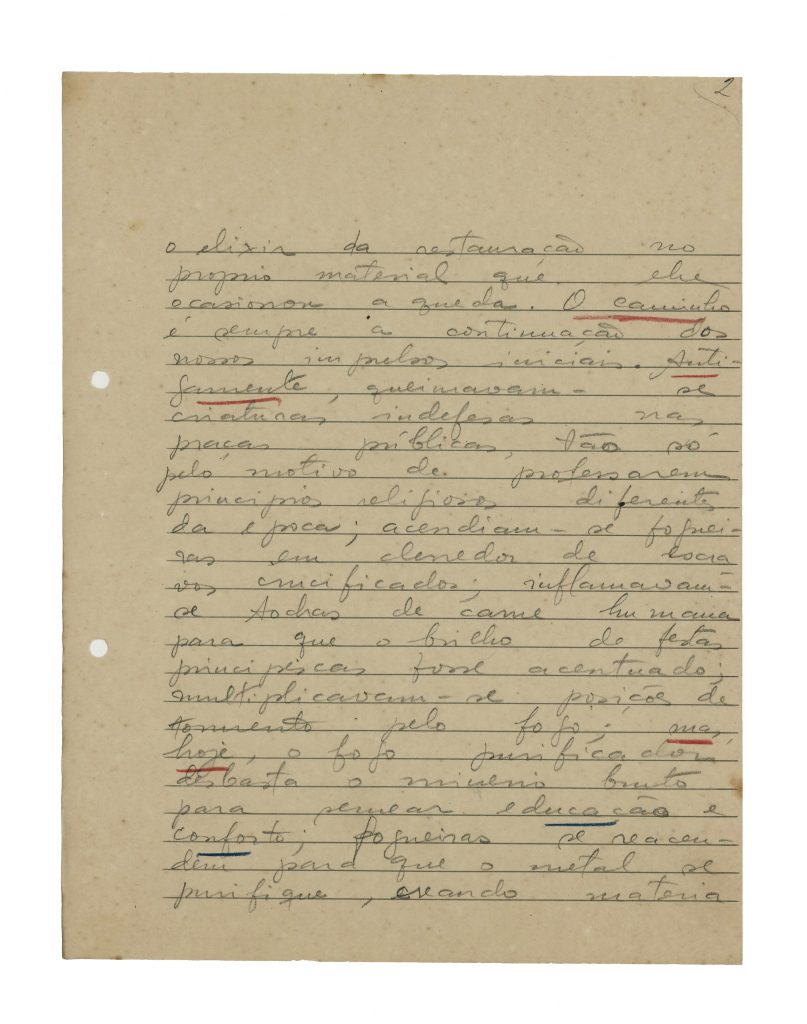 2
o elixir da restauração no
proprio material que lhe
ocasionou a queda. O caminho
é sempre a continuação dos
nossos impulsos iniciais. Anti-
gamente, queimavam-se
criaturas indefesas nas
praças públicas, tão só
pelo motivo de professarem
principios religiosos diferentes
da epoca; acendiam-se foguei-
ras em derredor de escra
vos crucificados; inflamavam-
se tochas de carne humana
para que o brilho de festas
principescas fosse acentuado;
multiplicavam-se posições de
tormento pelo fogo; mas,
hoje, o fogo purificador
desbasta o minerio bruto
para semear educação e
conforto; fogueiras se reacen-
dem para que o metal se
purifique, creando materia